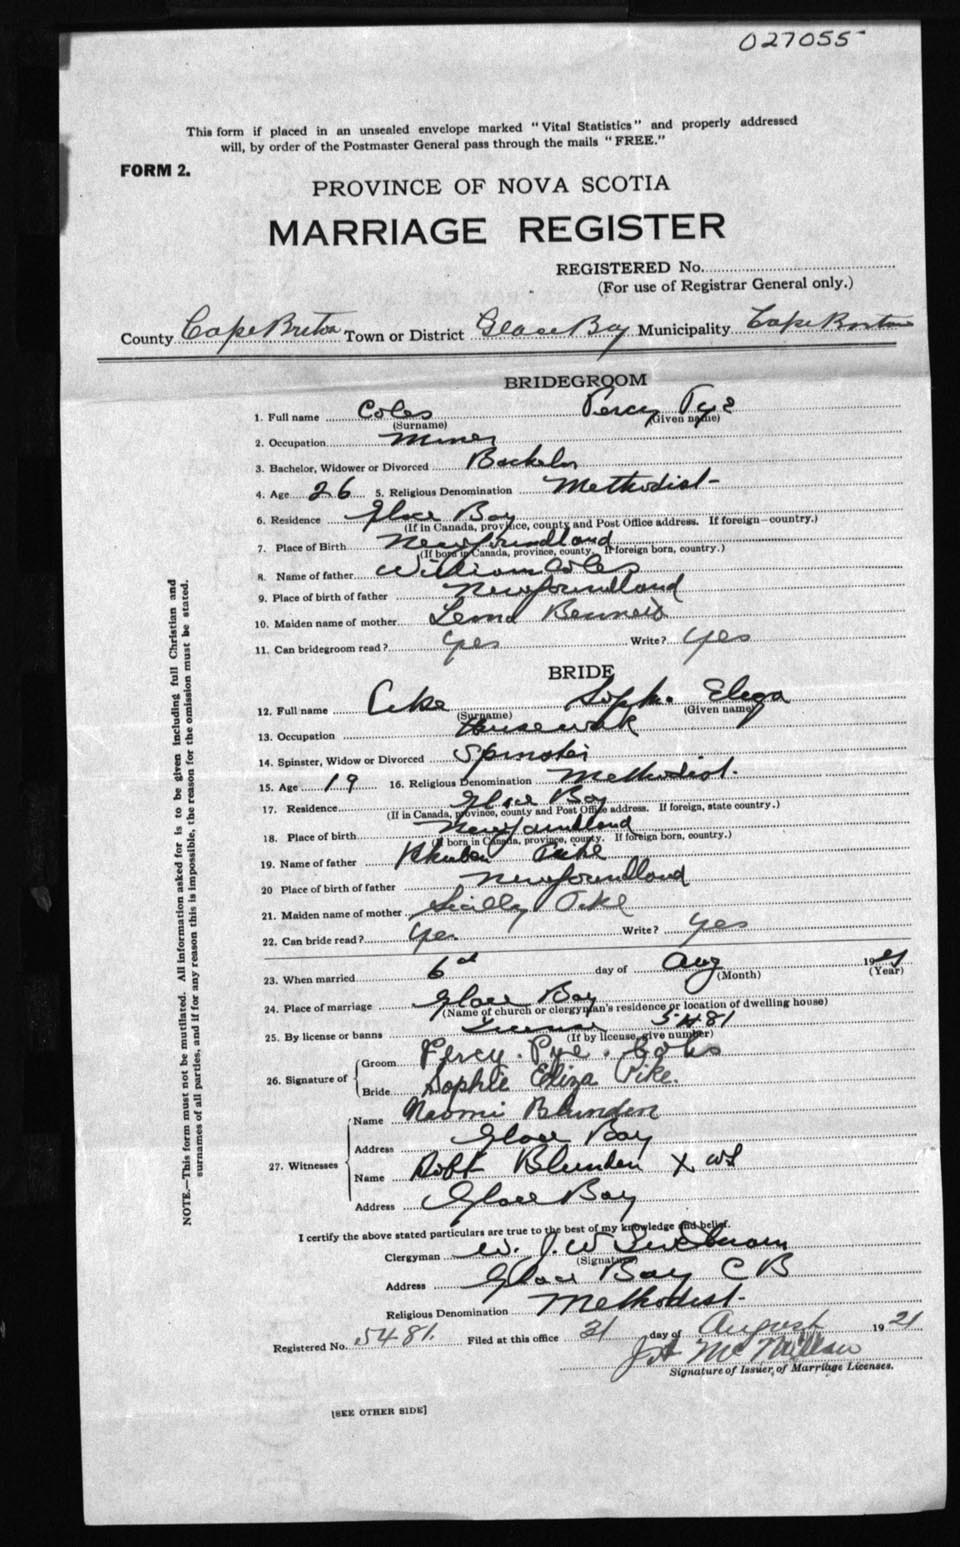 027055
This form if placed in an unsealed envelope marked "Vital Statistics" and properly addressed
will, by order of the Postmaster General pass through the mails "FREE."
FORM 2.
PROVINCE OF NOVA SCOTIA
MARRIAGE REGISTER
REGISTERED No.
(For use of Registrar General only.)
County Cape Breton Town or District Glace Bay Municipality Cape Breton
BRIDEGROOM
1. Full name Coles Percy Pye
(Surname) (Given name)
2. Occupation Miner
3. Bachelor, Widower or Divorced Bachelor
4. Age 26 5. Religious Denomination Methodist
6. Residence Glace Bay
(If in Canada, province, county and Post Office address. If foreign—country.)
7. Place of Birth Newfoundland
(If born in Canada, province, county. If foreign born, country.)
8. Name of father William Coles
9. Place of birth of father Newfoundland
10. Maiden name of mother
11. Can bridegroom read? yes Write? yes
BRIDE
12. Full name Pike Sophie Eliza
(Surname) (Given name)
13. Occupation Housework
14. Spinster, Widow or Divorced Spinster
15. Age 19 16. Religious Denomination Methodist.
17. Residence Glace Bay
(If in Canada, province, county and Post Office address. If foreign, state country.)
18. Place of birth Newfoundland
(If born in Canada, province, county. If foreign born, country.)
19. Name of father Pike
20 Place of birth of father Newfoundland
21. Maiden name of mother Pike
22. Can bride read? yes Write? yes
23. When married 6 day of Aug 19
(Month) (Year)
24. Place of marriage Glace Bay
(Name of church or clergyman's residence or location of dwelling house)
25. By license or banns License 5481
(If by license, give number)
26. Signature of Groom Percy. Pye. Coles
Bride Sophie Eliza Pike.
27. Witnesses Name Naomi Blunden
Address Glace Bay
Name Robt Blunden X
Address Glace Bay
I certify the above stated particulars are true to the best of my knowledge and belief.
Clergyman W. J. W
(Signature)
Address Glace Bay C B
Religious Denomination Methodist.
Registered No. 5481. Filed at this office 31 day of August 1921
J A McMillan
Signature of Issuer of Marriage Licenses.
[SEE OTHER SIDE]
NOTE.—This form must not be mutilated. All information asked for is to be given including full Christian and
surnames of all parties, and if for any reason this is impossible, the reason for the omission must be stated.